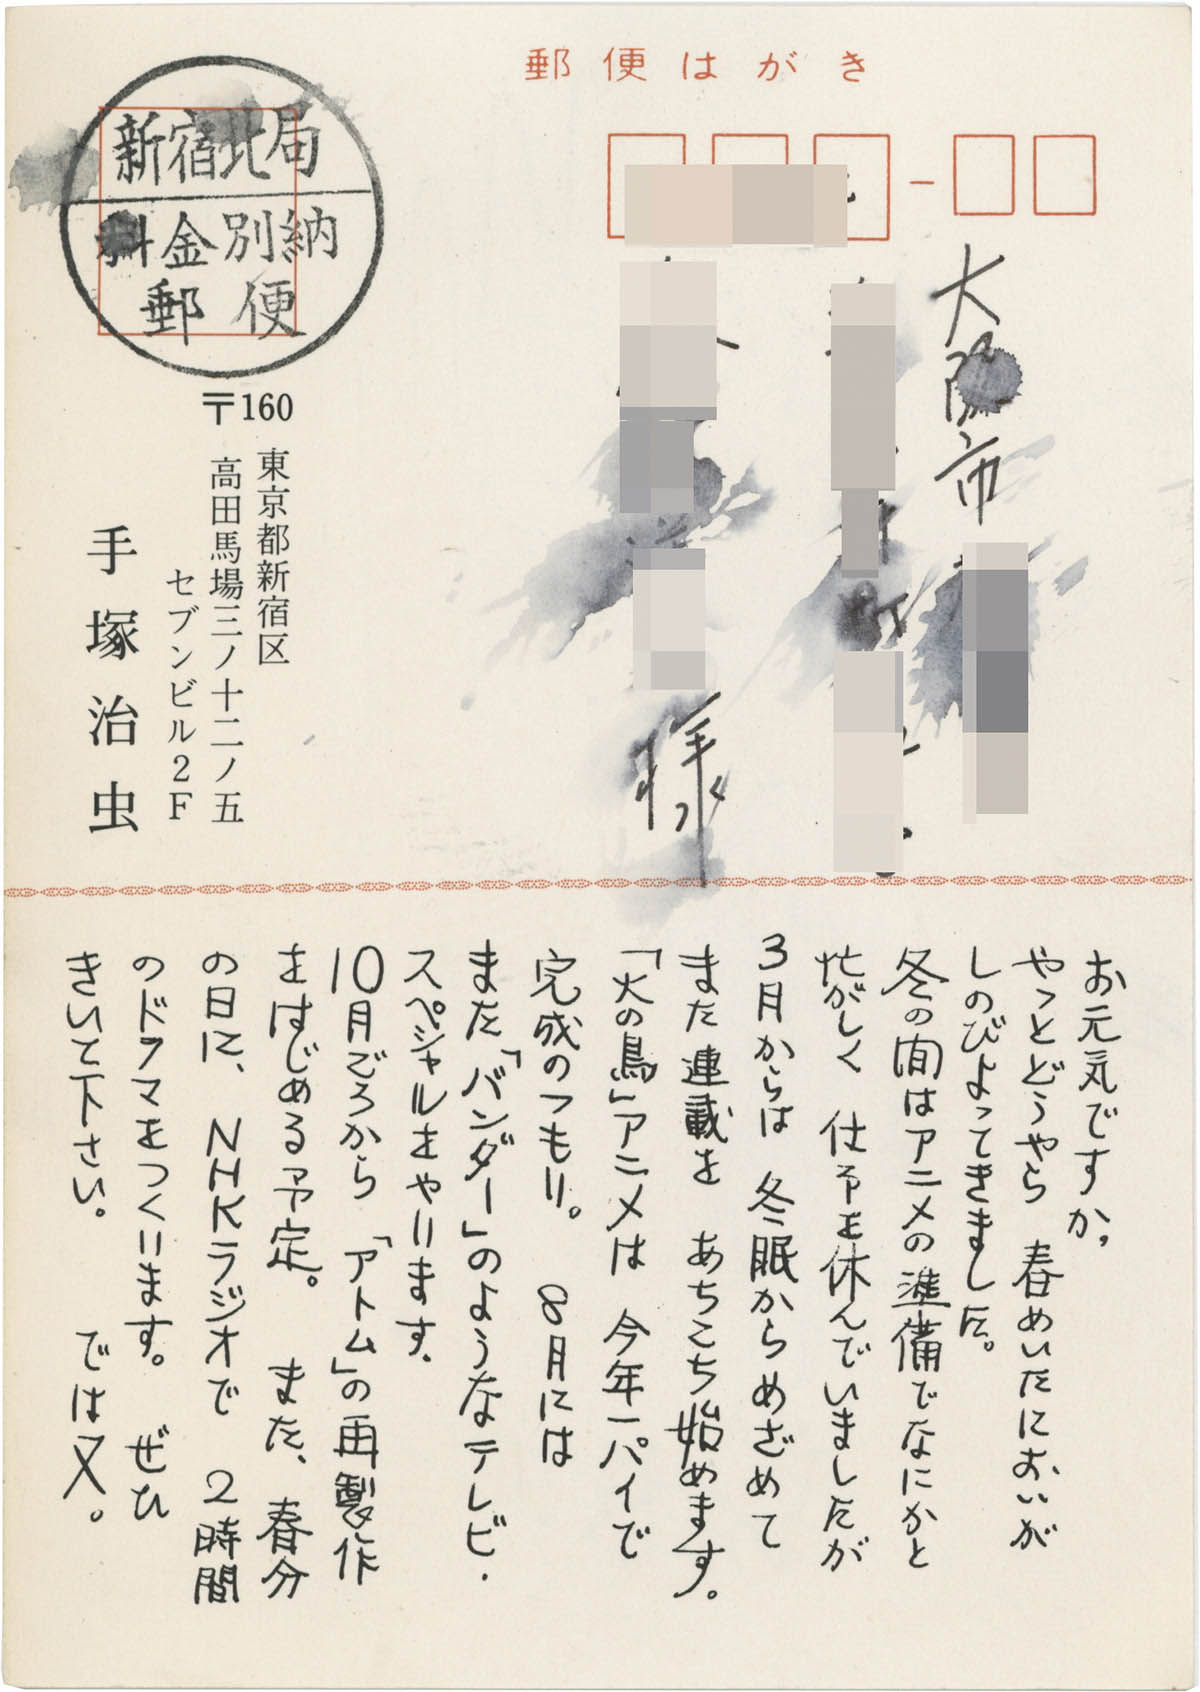 郵便はがき
新宿北局
料金別納
郵便
大阪市
様
〒160
東京都新宿区
高田馬場三ノ十二ノ五
セブンビル2F
手塚治虫
お元気ですか。
やっとどうやら 春めいたにおいが
しのびよってきました。
冬の間はアニメの準備でなにかと
忙がしく 仕事を休んでいましたが
3月からは 冬眠からめざめて
また連載を あちこち始めます。
「火の鳥」アニメは 今年一パイで
完成のつもり。 8月には
また「バンダー」のようなテレビ・
スペシャルをやります.
10月ごろから 「アトム」の再製作
をはじめる予定。 また、春分
の日に、NHKラジオで 2時間
のドラマをつくります。 ぜひ
きいて下さい。 では又。